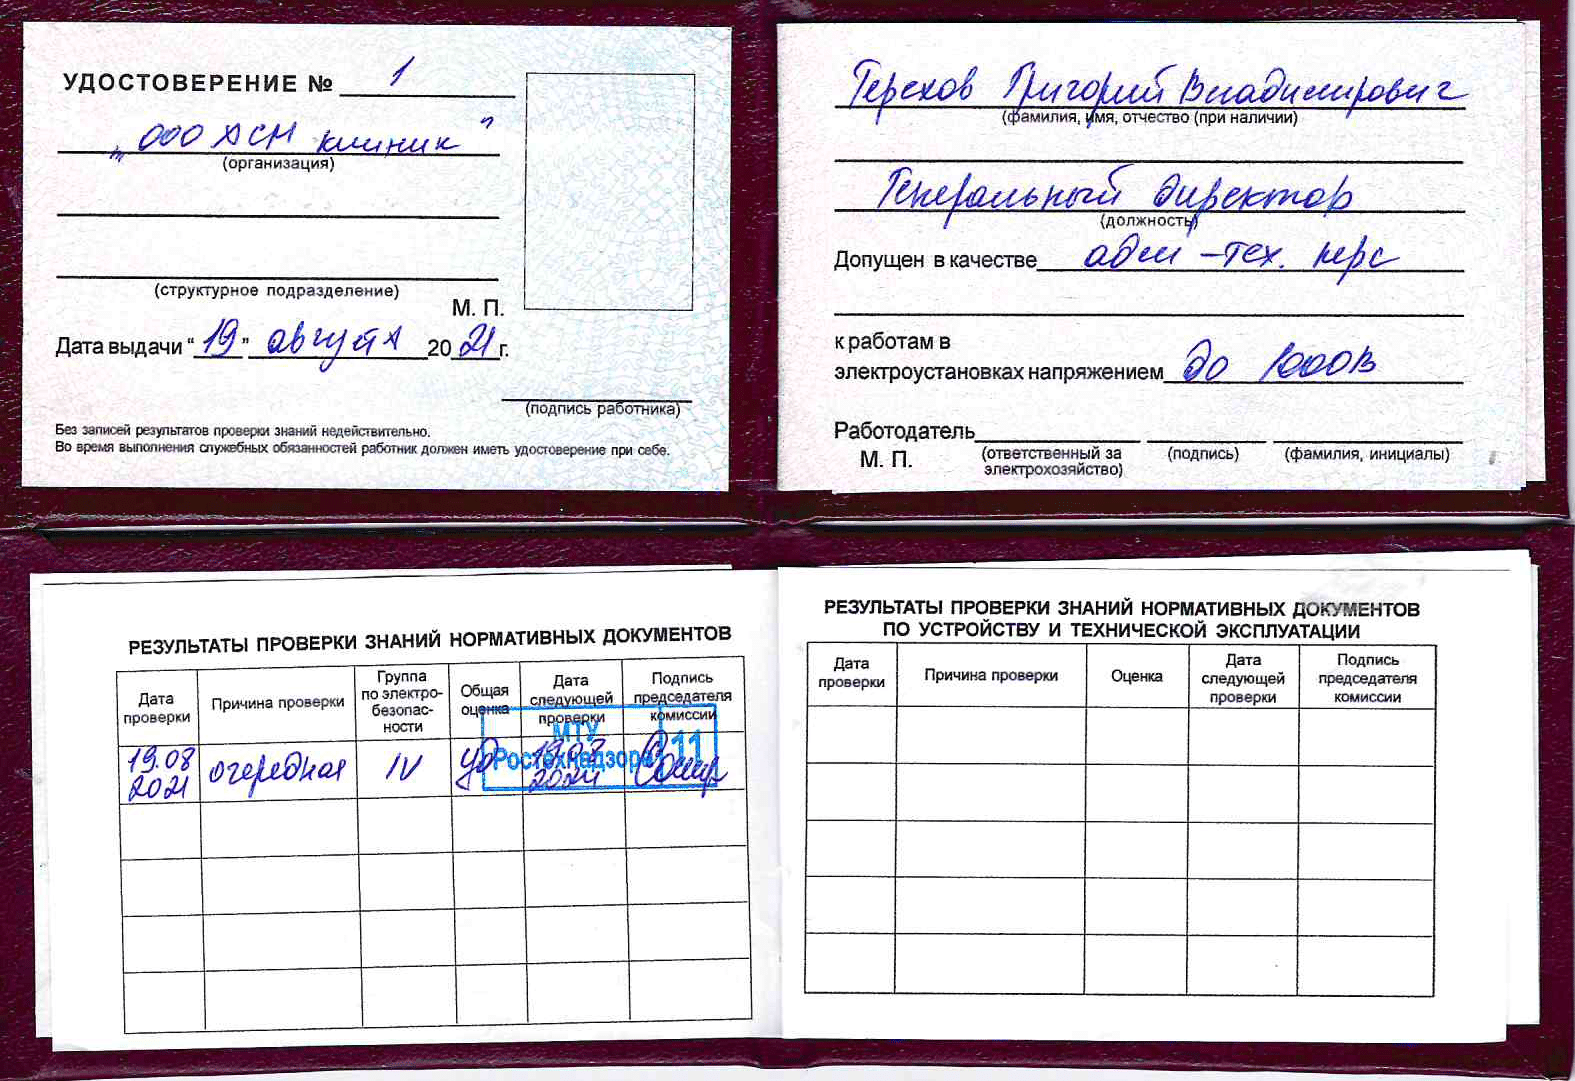 УДОСТОВЕРЕНИЕ № 1
"ООО АСМ клиник"
(организация)
(структурное подразделение)
М. П.
Дата выдачи "19" августа 2021г.
(подпись работника)
Без записей результатов проверки знаний недействительно.
Во время выполнения служебных обязанностей работник должен иметь удостоверение при себе.
Терехов Григорий Владимирович
(фамилия, имя, отчество (при наличии)
Генеральный директор
(должность)
Допущен в качестве адм-тех. перс
к работам в
электроустановках напряжением до 1000В
Работодатель
М. П.
(ответственный за
электрохозяйство)
(подпись)
(фамилия, инициалы)
РЕЗУЛЬТАТЫ ПРОВЕРКИ ЗНАНИЙ НОРМАТИВНЫХ ДОКУМЕНТОВ
Дата
проверки
Причина проверки
Группа
по электро-
безопас-
ности
Общая
оценка
Дата
следующей
проверки
Подпись
председателя
комиссии
19.08
2021
очередная
IV
уд
МТУ
Ростехнадзора
11
РЕЗУЛЬТАТЫ ПРОВЕРКИ ЗНАНИЙ НОРМАТИВНЫХ ДОКУМЕНТОВ
ПО УСТРОЙСТВУ И ТЕХНИЧЕСКОЙ ЭКСПЛУАТАЦИИ
Дата
проверки
Причина проверки
Оценка
Дата
следующей
проверки
Подпись
председателя
комиссии